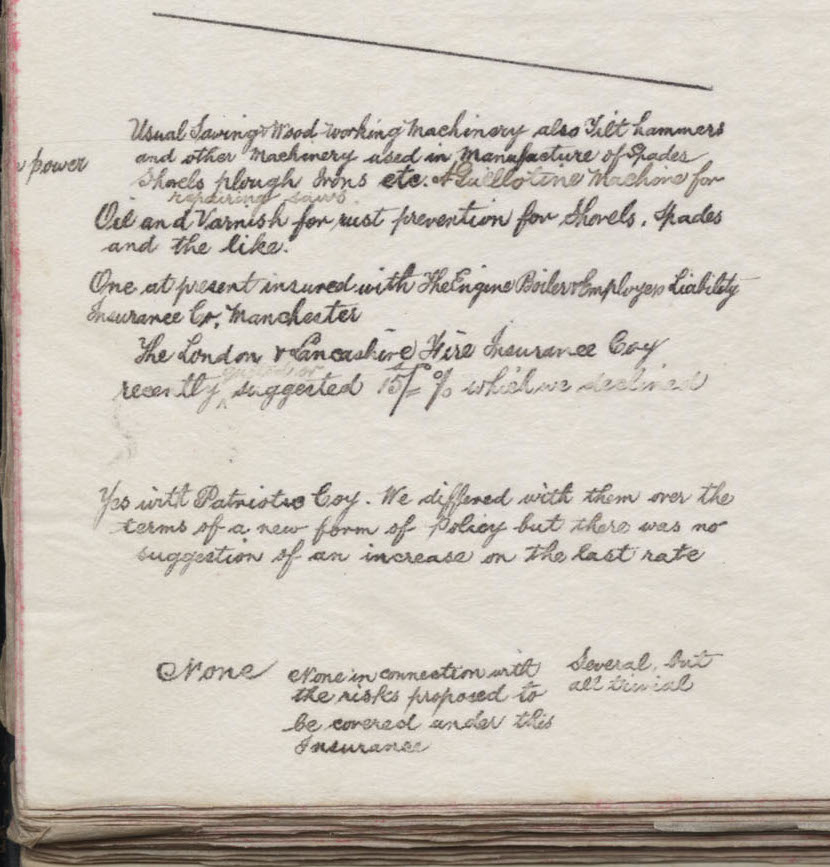 Usual Saving & Wood working Machinery also Tilt hammers
power
and other Machinery used in Manufacture of Spades
Shoels plough Irons etc. A Guellotine Machine for
repairing saws.
Oil and Varnish for rust prevention for Shovels, Spades
and the like.
One at present insured with The Engine Boiler & Employers Liability
Insurance Co, Manchester
The London & Lancashire Fire Insurance Coy
quoted or
recently ^ suggested 15/= % which we declined
Yes with Patriotic Coy. We differed with them over the
terms of a new form of Policy but there was no
suggestion of an increase on the last rate
None
None in connection with
the risks proposed to
be covered under this
Insurance
Several, but
all trivial